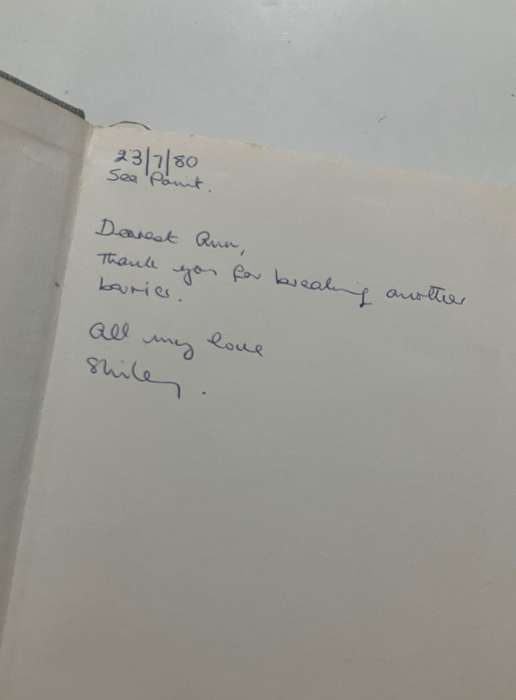 23/7/80
Sea Point.
Dearest Ann,
Thank you for breaking another
barrier.
All my love
Shirley.